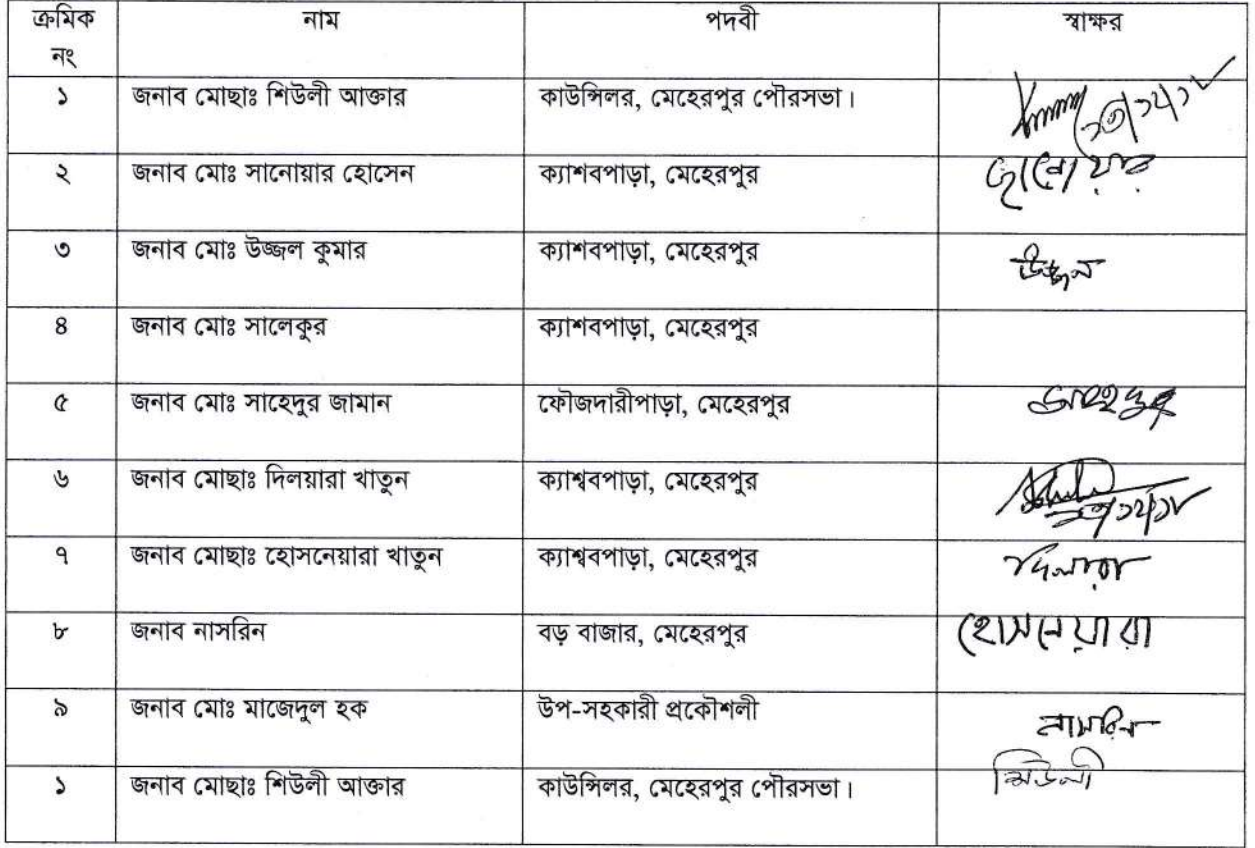 ক্রমিক নাম পদবী স্বাক্ষর
নং
১ জনাব মোছাঃ শিউলী আক্তার কাউন্সিলর, মেহেরপুর পৌরসভা।
২ জনাব মোঃ সানোয়ার হোসেন ক্যাশবপাড়া, মেহেরপুর ছানোয়ার
৩ জনাব মোঃ উজ্জল কুমার ক্যাশবপাড়া, মেহেরপুর উজ্জল
৪ জনাব মোঃ সালেকুর ক্যাশবপাড়া, মেহেরপুর
৫ জনাব মোঃ সাহেদুর জামান ফৌজদারীপাড়া, মেহেরপুর
৬ জনাব মোছাঃ দিলয়ারা খাতুন ক্যাশ্ববপাড়া, মেহেরপুর
৭ জনাব মোছাঃ হোসনেয়ারা খাতুন ক্যাশ্ববপাড়া, মেহেরপুর দিলারা
৮ জনাব নাসরিন বড় বাজার, মেহেরপুর হোসনেয়ারা
৯ জনাব মোঃ মাজেদুল হক উপ-সহকারী প্রকৌশলী নাসরিন
১ জনাব মোছাঃ শিউলী আক্তার কাউন্সিলর, মেহেরপুর পৌরসভা। শিউলী